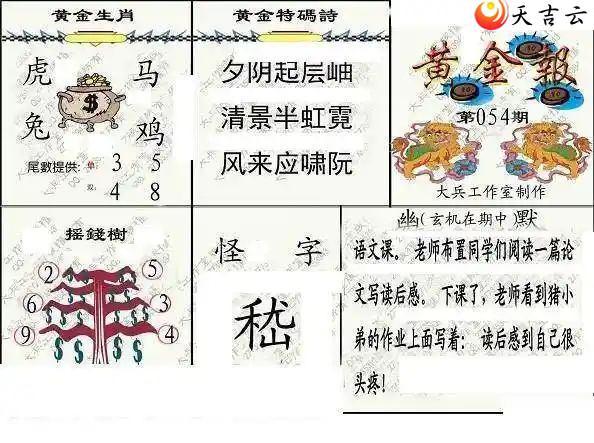 黄金生肖
虎
马
兔
鸡
尾數提供:
單:
3
5
双:
4
8
黄金特碼詩
夕阴起层岫
清景半虹霓
风来应啸阮
天吉云
黄金報
第054期
大兵工作室制作
摇錢樹
2
5
6
3
9
4
怪 字
嵇
幽(玄机在期中)默
语文课。 老师布置同学们阅读一篇论
文写读后感。 下课了，老师看到猪小
弟的作业上面写着： 读后感到自己很
头疼!